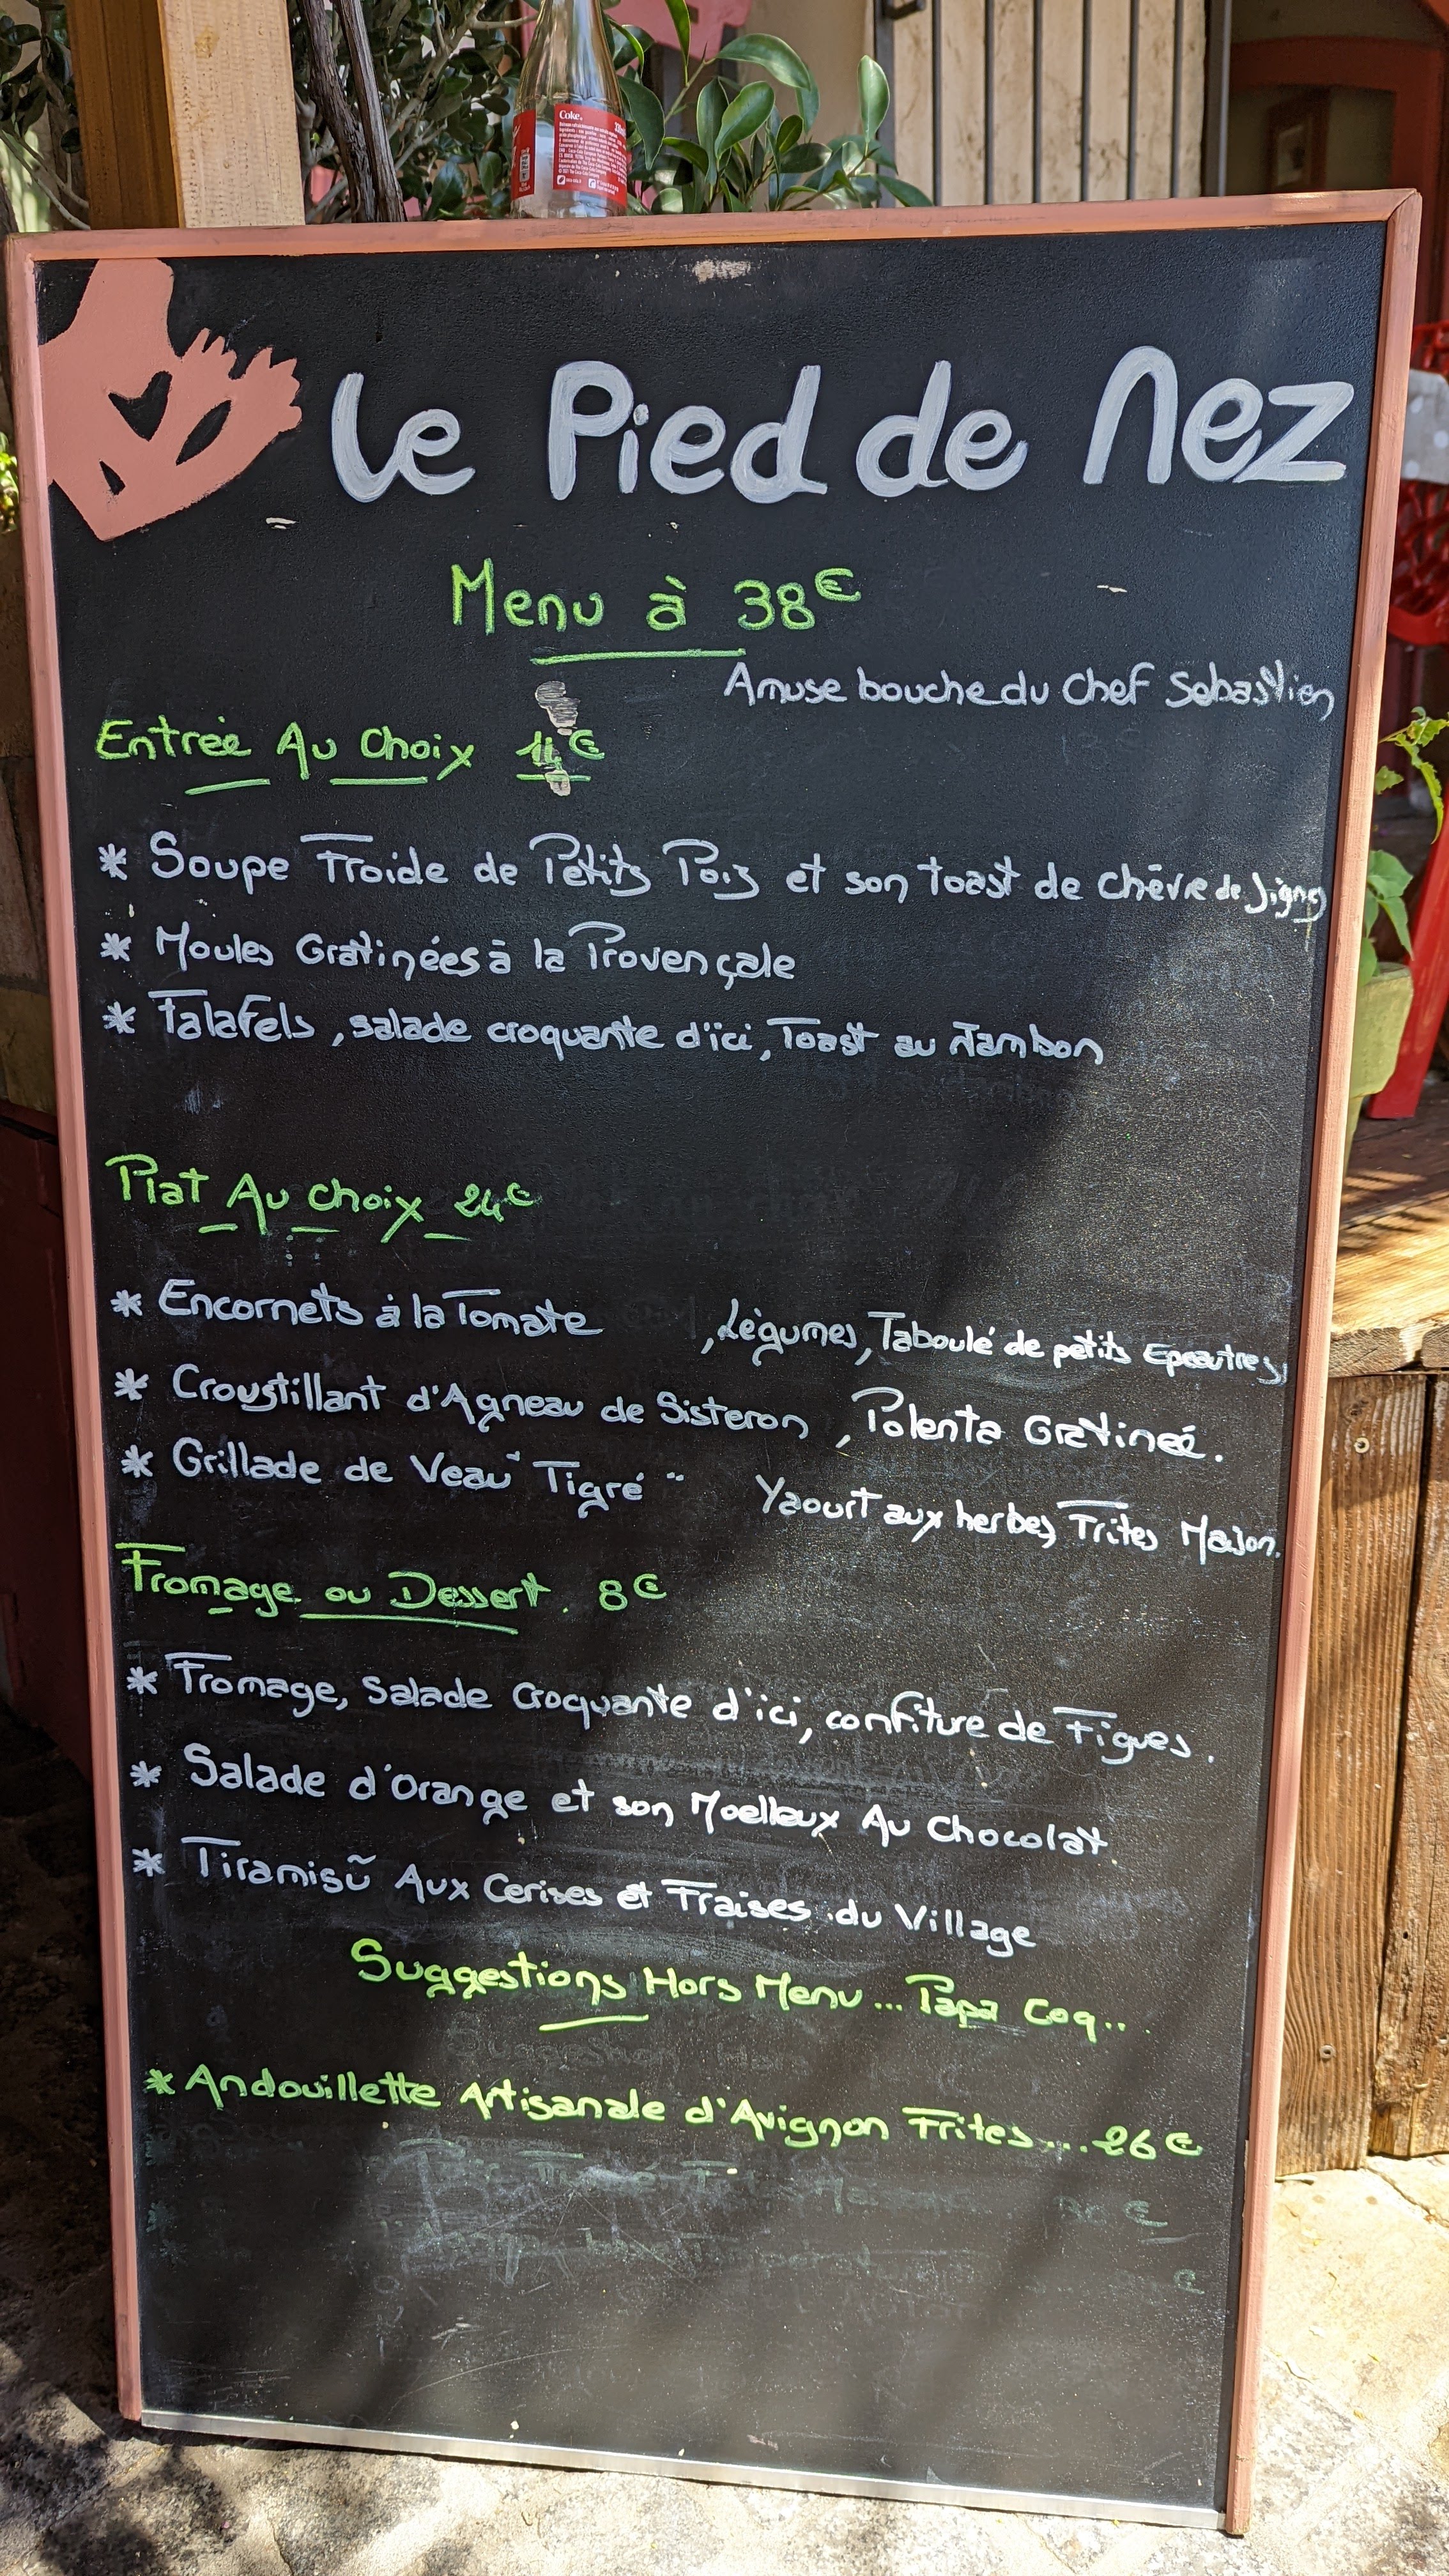 Coke
Le Pied de Nez
Menu à 38€
Amuse bouche du Chef Sebastien
Entrée Au Choix
* Soupe Froide de Petits Pois et son toast de chèvre de
* Moules Gratinées à la Provençale
* Falafels, salade croquante d'ici, Toast au Jambon
Plat Au Choix 24€
* Encornets à la Tomate , Légumes, Taboulé de petits Epeautres,
* Croustillant d'Agneau de Sisteron , Polenta Gratineé.
* Grillade de Veau "Tigré" Yaourt aux herbes, Frites Maison.
Fromage ou Dessert. 8€
* Fromage, Salade Croquante d'ici, confiture de Figues.
* Salade d'Orange et son Moelleux Au Chocolat
* Tiramisũ Aux Cerises et Fraises du Village
Suggestions Hors Menu... Papa Coq..
* Andouillette Artisanale d'Avignon Frites.... 26€